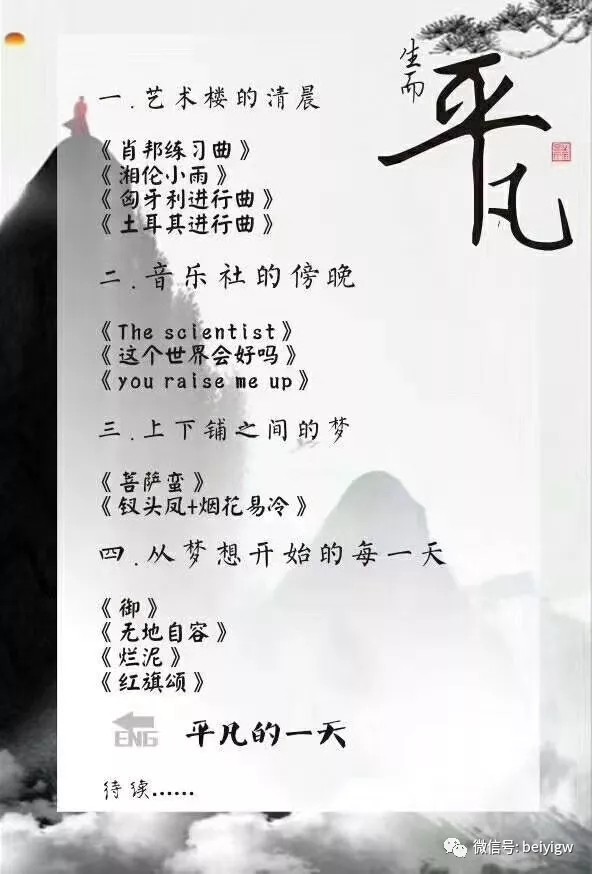 生而
平凡
一.艺术楼的清晨
《肖邦练习曲》
《湘伦小雨》
《匈牙利进行曲》
《土耳其进行曲》
二.音乐社的傍晚
《The scientist》
《这个世界会好吗》
《you raise me up》
三.上下铺之间的梦
《菩萨蛮》
《钗头凤+烟花易冷》
四.从梦想开始的每一天
《御》
《无地自容》
《烂泥》
《红旗颂》
ENG 平凡的一天
待续......
微信号: beiyigw